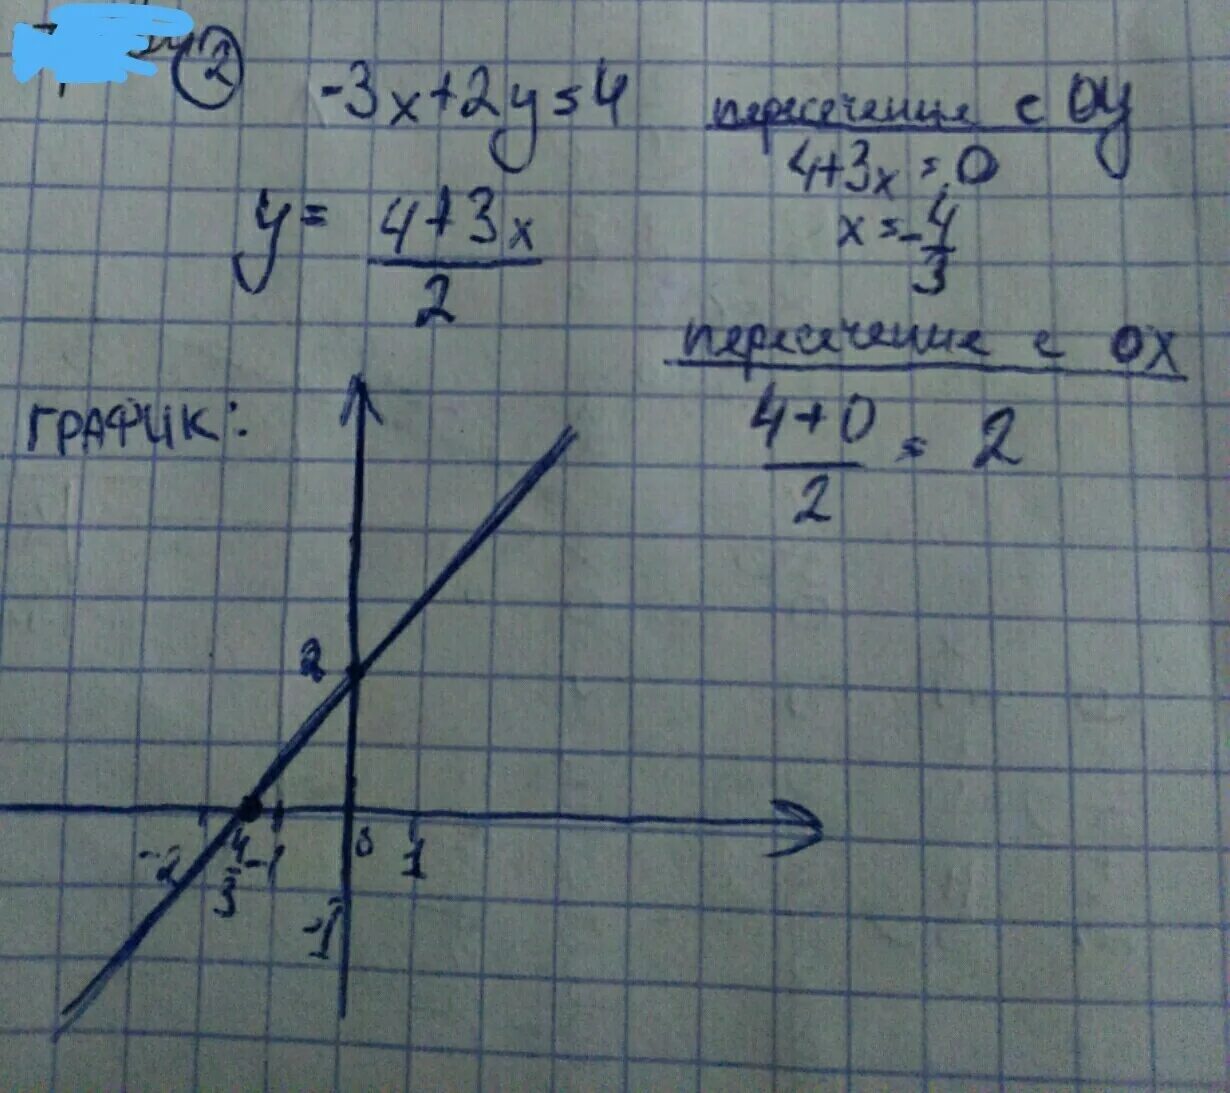 2
-3x+2y=4
y = 4+3x / 2
пересечение с OY
4+3x = 0
x = -4/3
пересечение с OX
4+0 / 2 = 2
ГРАФИК:
2
-2 4/3 -1 0 1
-1